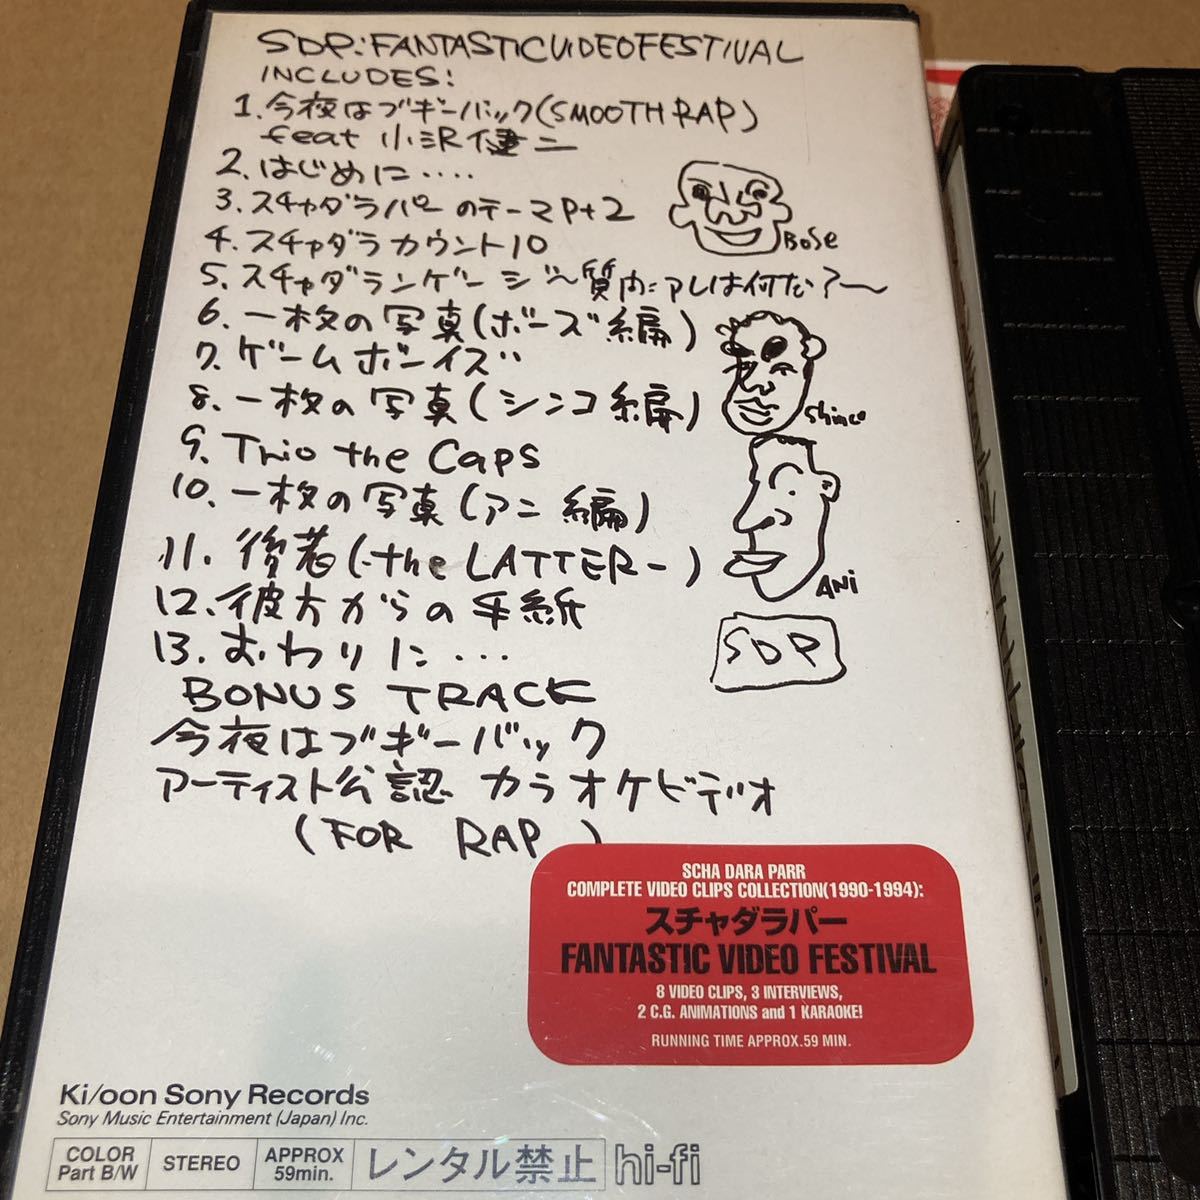 SDP:FANTASTICVIDEOFESTIVAL
INCLUDES:
1.今夜はブギーバック(SMOOTH RAP)
feat 小沢健二
2.はじめに....
3.スチャダラパーのテーマPt2
4.スチャダラカウント10
5.スチャダランゲージ〜質問:アレは何だ?〜
6.一枚の写真(ボーズ編)
7.ゲームボーイズ
8.一枚の写真(シンコ編)
9.Trio the Caps
10.一枚の写真(アニ編)
11.後者(-the LATTER-)
12.彼方からの手紙
13.おわりに...
BONUS TRACK
今夜はブギーバック
アーティスト公認 カラオケビデオ
(FOR RAP)
BOSE
Shinco
ANi
SDP
SCHA DARA PARR
COMPLETE VIDEO CLIPS COLLECTION(1990-1994):
スチャダラパー
FANTASTIC VIDEO FESTIVAL
8 VIDEO CLIPS, 3 INTERVIEWS,
2 C.G. ANIMATIONS and 1 KARAOKE!
RUNNING TIME APPROX.59 MIN.
Ki/oon Sony Records
Sony Music Entertainment (Japan) Inc.
COLOR
Part B/W
STEREO
APPROX
59min.
レンタル禁止
hi-fi